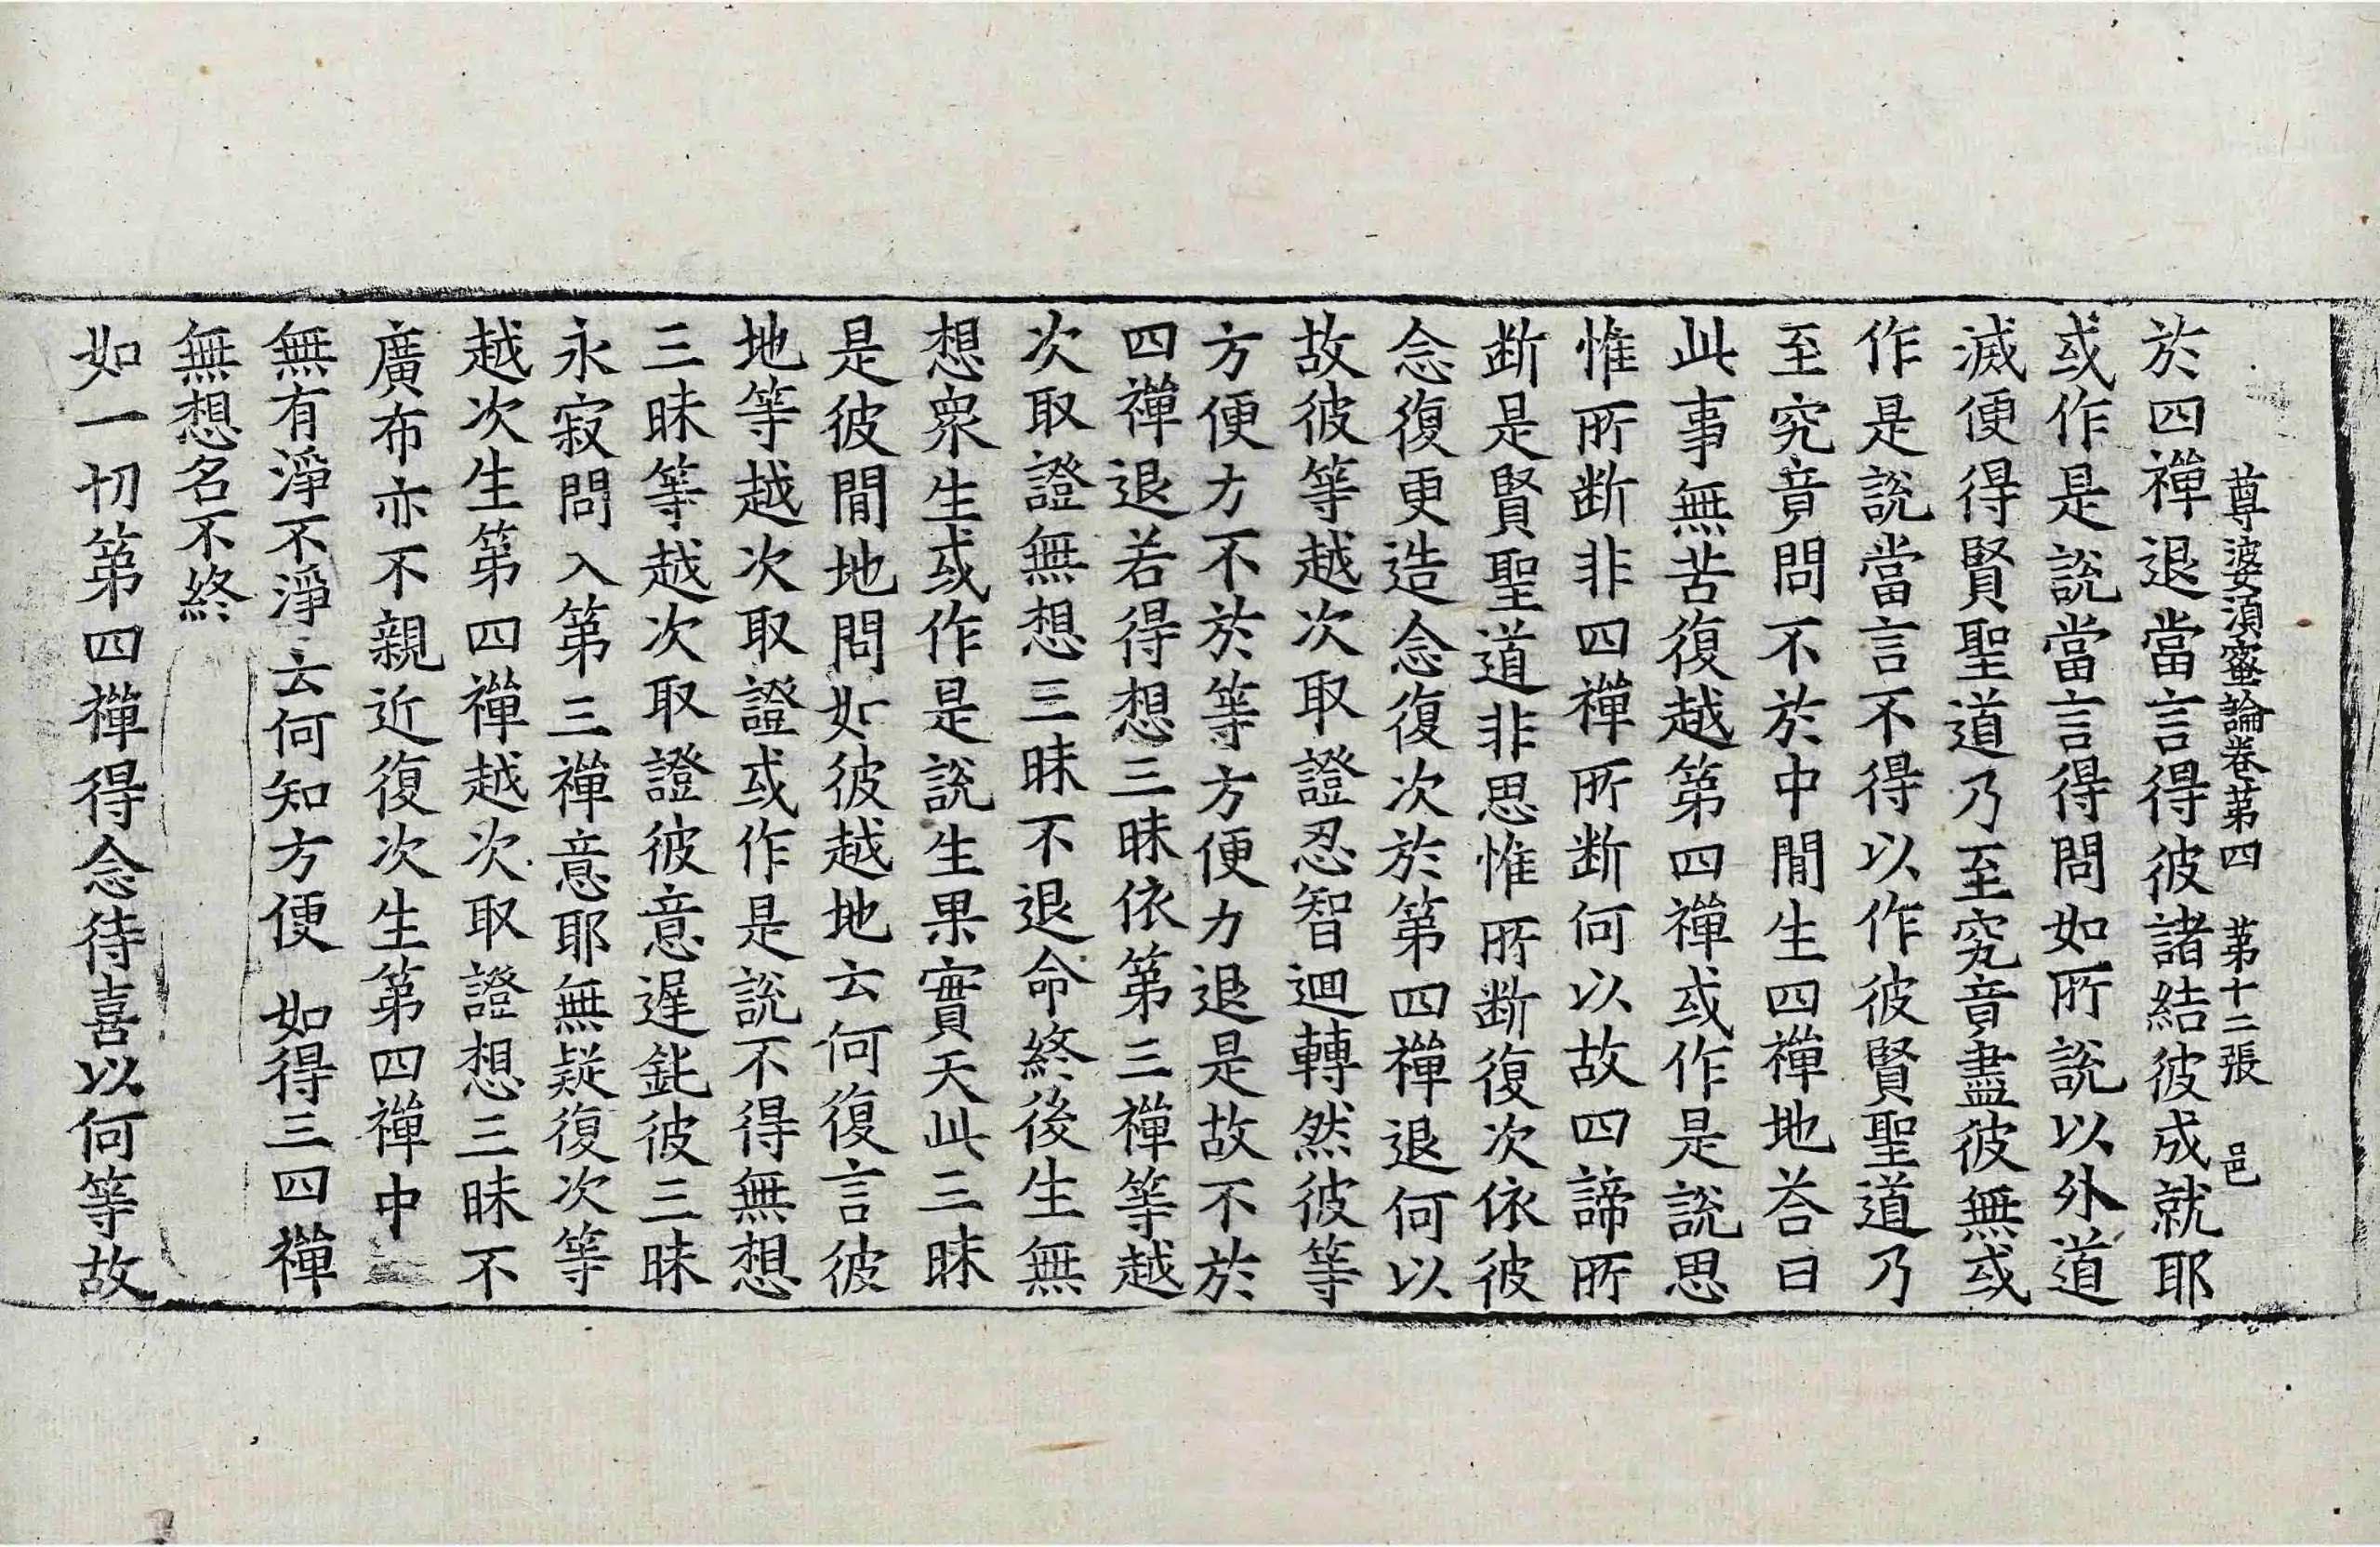 尊婆須蜜論卷苐四　苐十二張　邑
於四禪退當言得彼諸結彼成就耶
或作是說當言得問如所說以外道
滅便得賢聖道乃至究竟盡彼無或
作是說當言不得以作彼賢聖道乃
至究竟問不於中間生四禪地荅曰
此事無苦復越第四禪或作是說思
惟所断非四禪所断何以故四諦所
断是賢聖道非思惟所断復次依彼
念復更造念復次於第四禪退何以
故彼等越次取證忍智迴轉然彼等
方便力不於等方便力退是故不於
四禪退若得想三昧依第三禪等越
次取證無想三昧不退命終後生無
想衆生或作是說生果實天此三昧
是彼間地問如彼越地云何復言彼
地等越次取證或作是說不得無想
三昧等越次取證彼意遲鈍彼三昧
永寂問入第三禪意耶無疑復次等
越次生第四禪越次取證想三昧不
廣布亦不親近復次生第四禪中
無有淨不淨　云何知方便　如得三四禪
無想名不終
如一切第四禪得念待喜以何等故